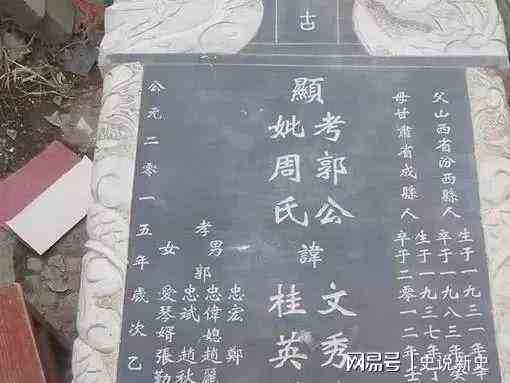 古
父山西省汾西縣人
生于一九三一年
卒于一九八三年癸
母甘肅省成縣人
生于一九三七年
卒于二零一二年壬
顯
考郭公諱文秀
妣周氏桂英
孝男郭
忠宏 鄭
忠偉媳趙麗
忠斌 趙秋
女愛琴婿張勤
公元二零一五年歲次乙
网易号 | 史说新史